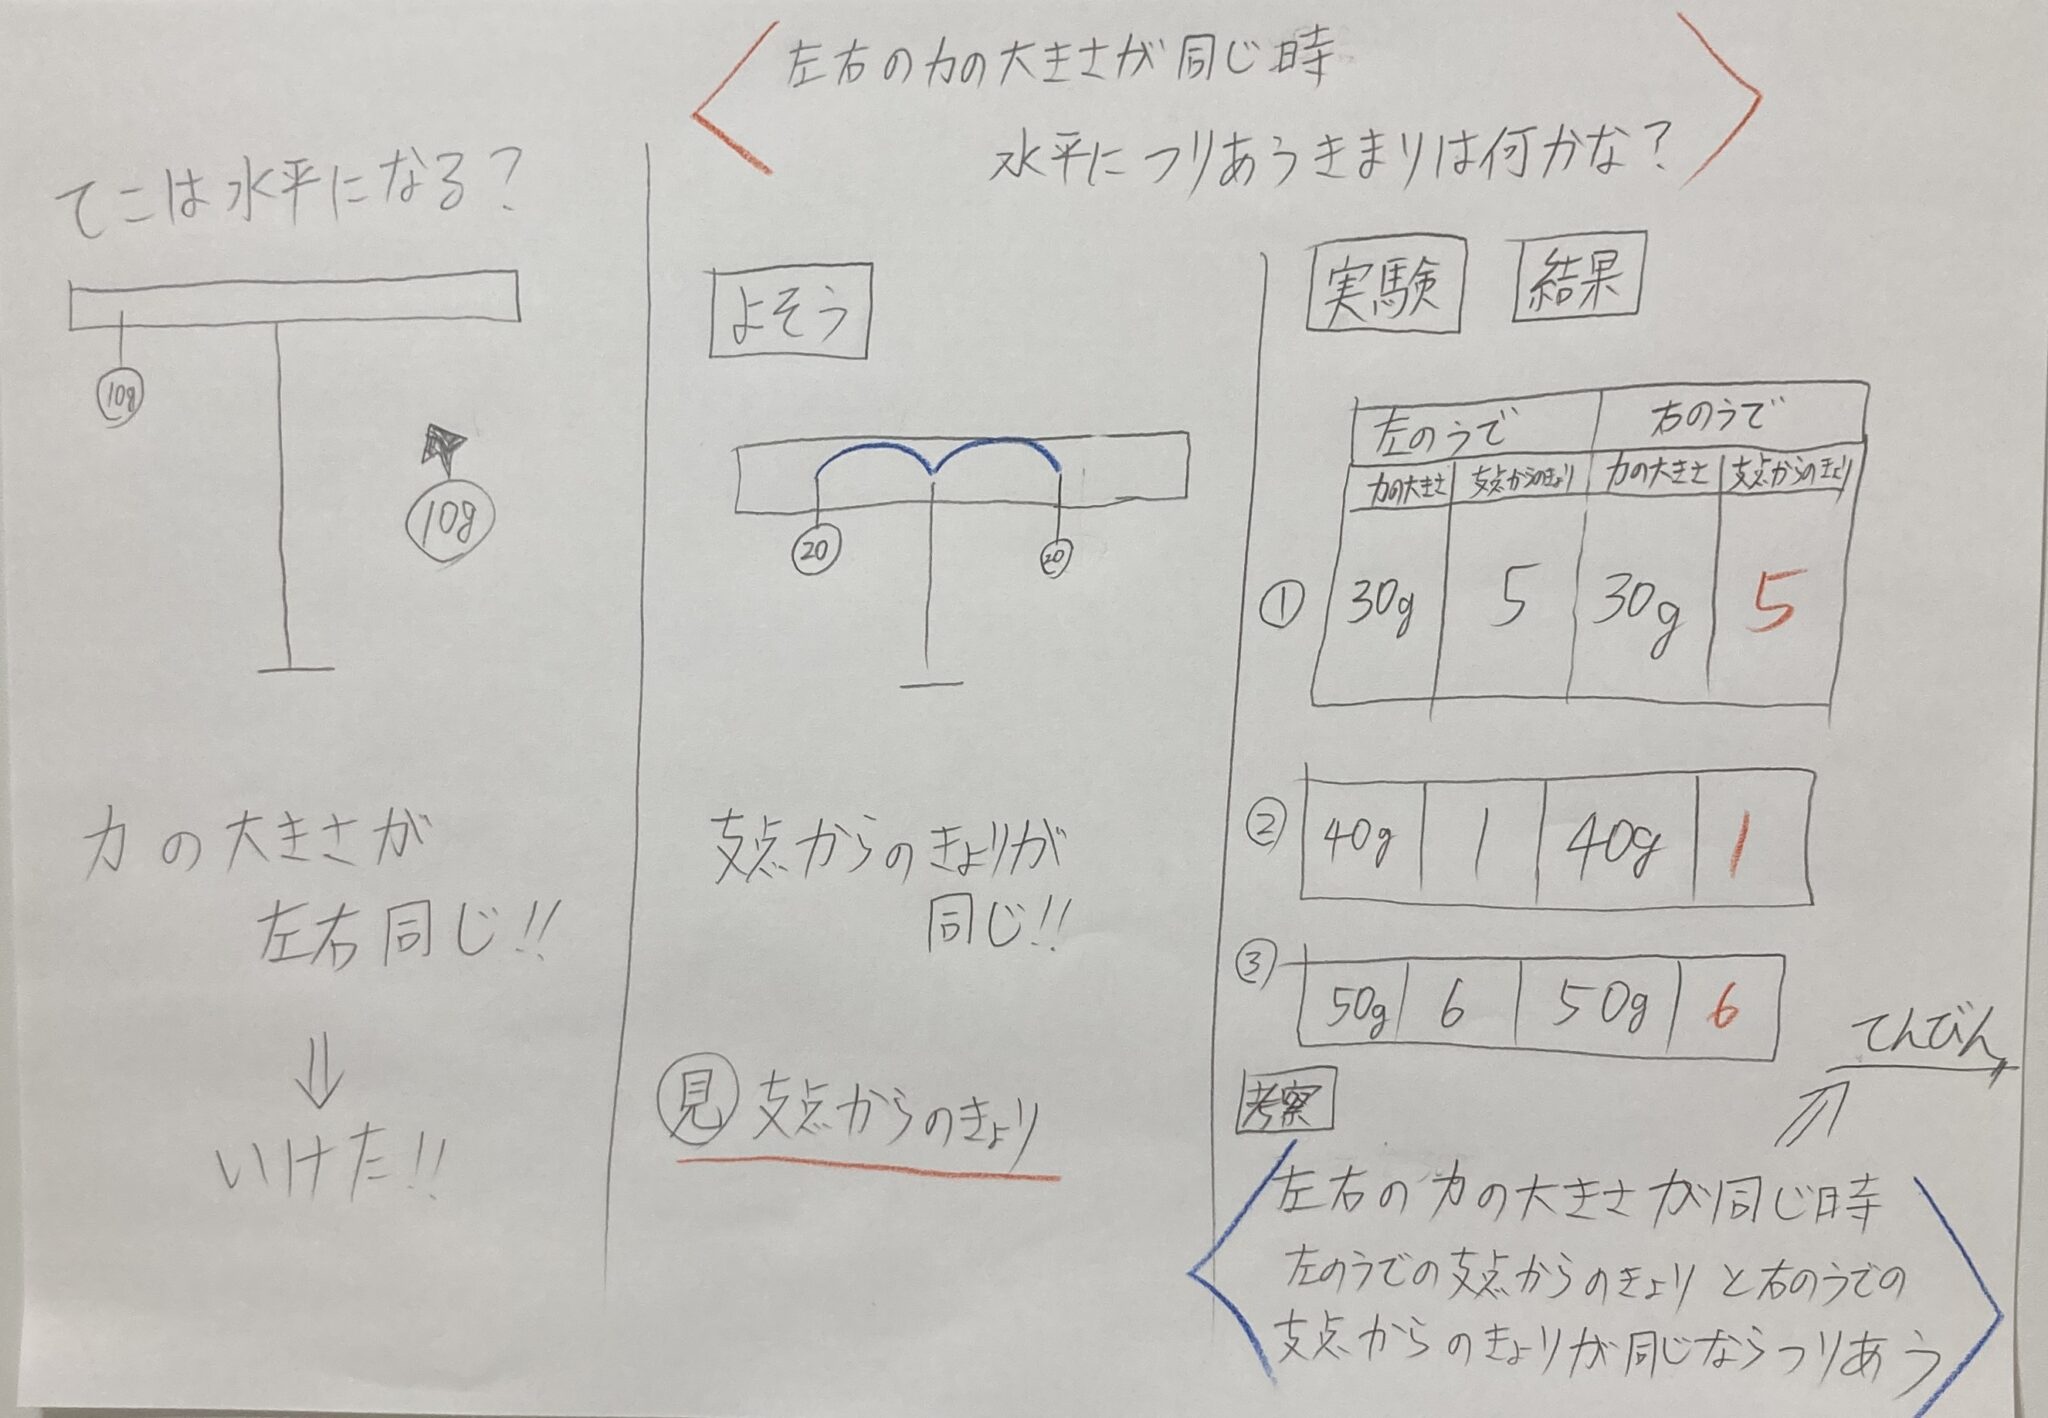 左右の力の大きさが同じ時
水平につりあうきまりは何かな?
てこは水平になる?
10g
10g
力の大きさが
左右同じ!!
⇓
いけた!!
よそう
20
20
支点からのきょりが
同じ!!
見 支点からのきょり
実験 結果
左のうで 右のうで
力の大きさ 支点からのきょり 力の大きさ 支点からのきょり
① 30g 5 30g 5
② 40g 1 40g 1
③ 50g 6 50g 6
てんびん
考察
左右の力の大きさが同じ時
左のうでの支点からのきょりと右のうでの
支点からのきょりが同じならつりあう